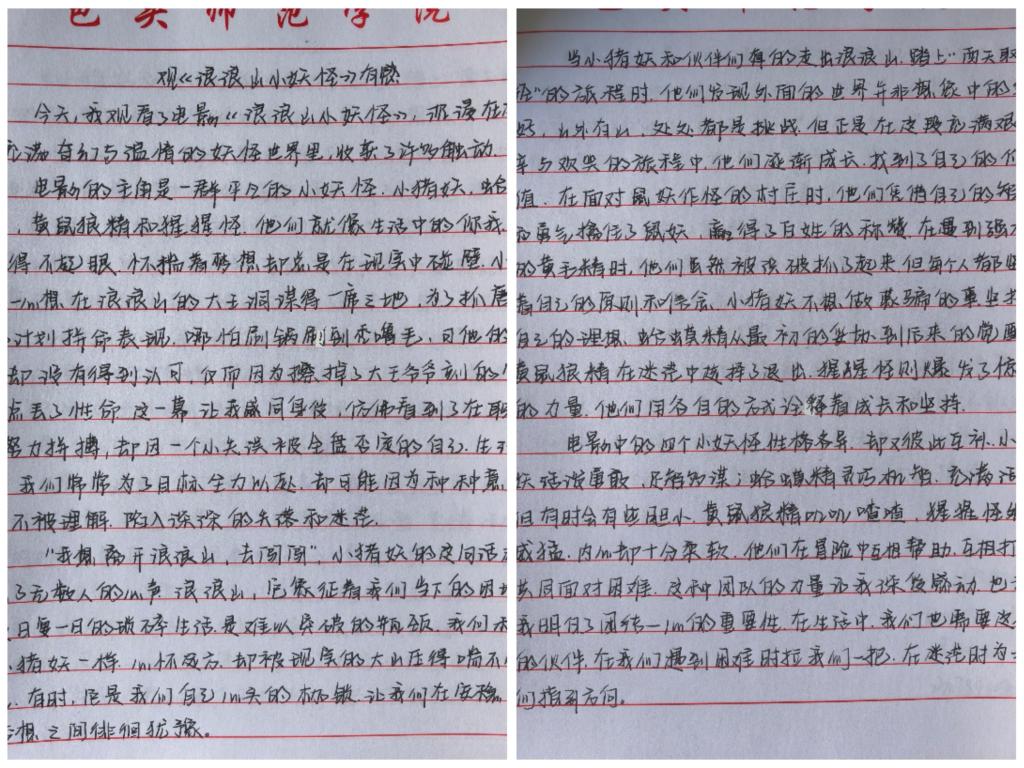 包头师范学院
观《浪浪山小妖怪》有感
今天,我观看了电影《浪浪山小妖怪》,沉浸在
充满奇幻与温情的妖怪世界里,收获了许多触动
电影的主角是一群平凡的小妖怪.小猪妖,蛤
,黄鼠狼精和猩猩怪.他们就像生活中的你我
得不起眼.怀揣着梦想却总是在现实中碰壁.小
一心想在浪浪山的大王洞谋得一席之地,为了抓唐
计划拼命表现.哪怕刷锅刷到秃嘴毛,可他的
却没有得到认可,反而因为擦掉了大王爷爷刻的
点丢了性命.这一幕让我感同身受,仿佛看到了在职
努力拼搏,却因一个小失误被全盘否定的自己.生
我们常常为了目标全力以赴.却可能因为种种意
不被理解.陷入深深的失落和迷茫.
“我想离开浪浪山,去闯闯”,小猪妖的这句话
了无数人的心声.浪浪山,它象征着我们当下的困
日复一日的琐碎生活.是难以突破的瓶颈.我们
猪妖一样.心怀远方.却被现实的大山压得喘不
.有时,它是我们自己心头的枷锁.让我们在安稳
想之间徘徊犹豫。
当小猪妖和伙伴们真的走出浪浪山.踏上“西天取
经”的旅程时.他们发现外面的世界并非想象中的
好,山外有山,处处都是挑战.但正是在这段充满艰
辛与欢笑的旅程中.他们逐渐成长.找到了自己的价
值.在面对鼠妖作怪的村庄时,他们凭借自己的智
和勇气擒住了鼠妖.赢得了百姓的称赞.在遇到强大
的黄毛精时.他们虽然被抓了起来.但每个人都
着自己的原则和信念.小猪妖不想做
自己的理想.蛤蟆精从最初的妥协到后来的觉醒
黄鼠狼精在迷茫中选择了退出.猩猩怪则爆发了惊
的力量.他们用各自的方式诠释着成长和坚持.
电影中的四个小妖怪性格各异.却又彼此互补.小
妖活泼勇敢.足智多谋;蛤蟆精灵活机智.充满活
但有时会有些胆小.黄鼠狼精叽叽喳喳.猩猩怪
威猛.内心却十分柔软.他们在冒险中互相帮助.互相打
共同面对困难.这种团队的力量让我深受感动.也
我明白了团结一心的重要性.在生活中.我们也需要这
的伙伴.在我们遇到困难时拉我们一把.在迷茫时为
们指引方向。